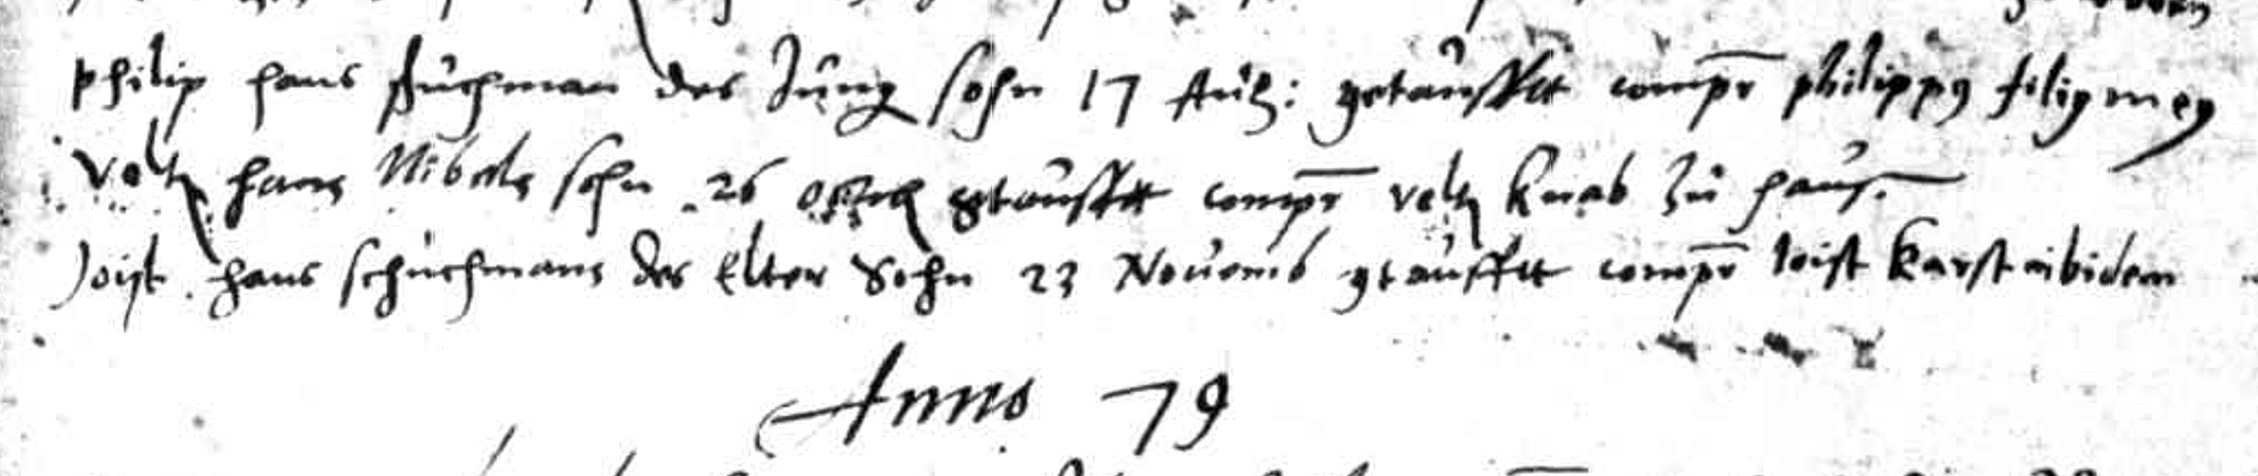 philip hans schuchman des Jung sohn 17 Aug: getaufft compr philippus filius meus
Veltz hans Nibels sohn 26 getaufft compr veltz knab zu haus.
Joist hans schuchmans des Elter Sohn 23 Novemb getaufft compr Joist Karst ibidem
Anno 79